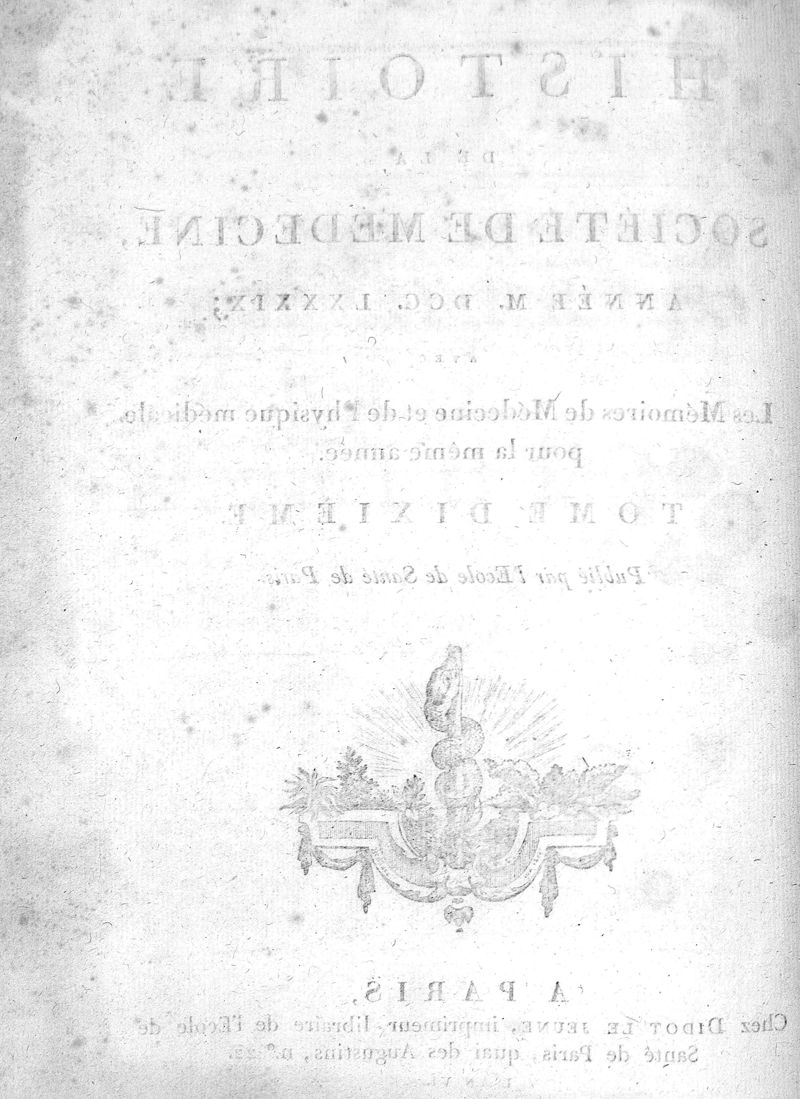 HISTOIRE
DE LA
SOCIÉTÉ DE MÉDECINE,
ANNÉE M. DCC. LXXXIX;
AVEC
Les Mémoires de Médecine et de Physique médicale,
pour la même année.
TOME DIXIÈME.
Publié par l'Ecole de Santé de Paris.
A PARIS,
Chez DIDOT LE JEUNE, imprimeur-libraire de l'Ecole de
Santé de Paris, quai des Augustins, n.º 22.
L'AN VI.